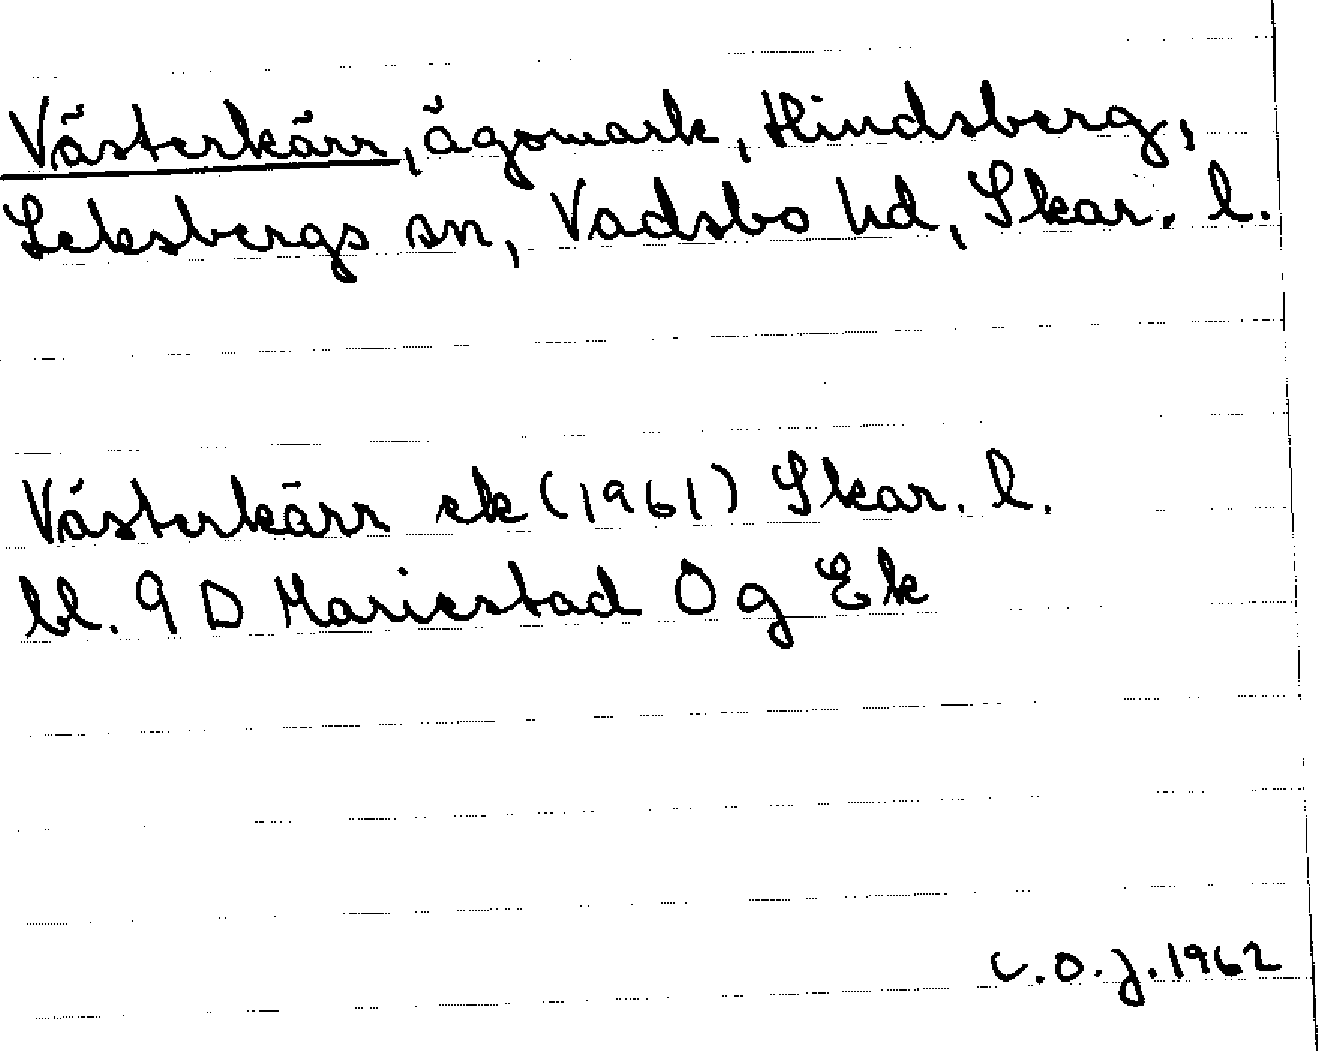 Västerkärr, ägomark, Hindsberg,
Leksbergs sn, Vadsbo hd, Skar. l.
Västerkärr ek (1961) Skar. l.
bl. 9 D Mariestad Ög Ek
C.O.J. 1962